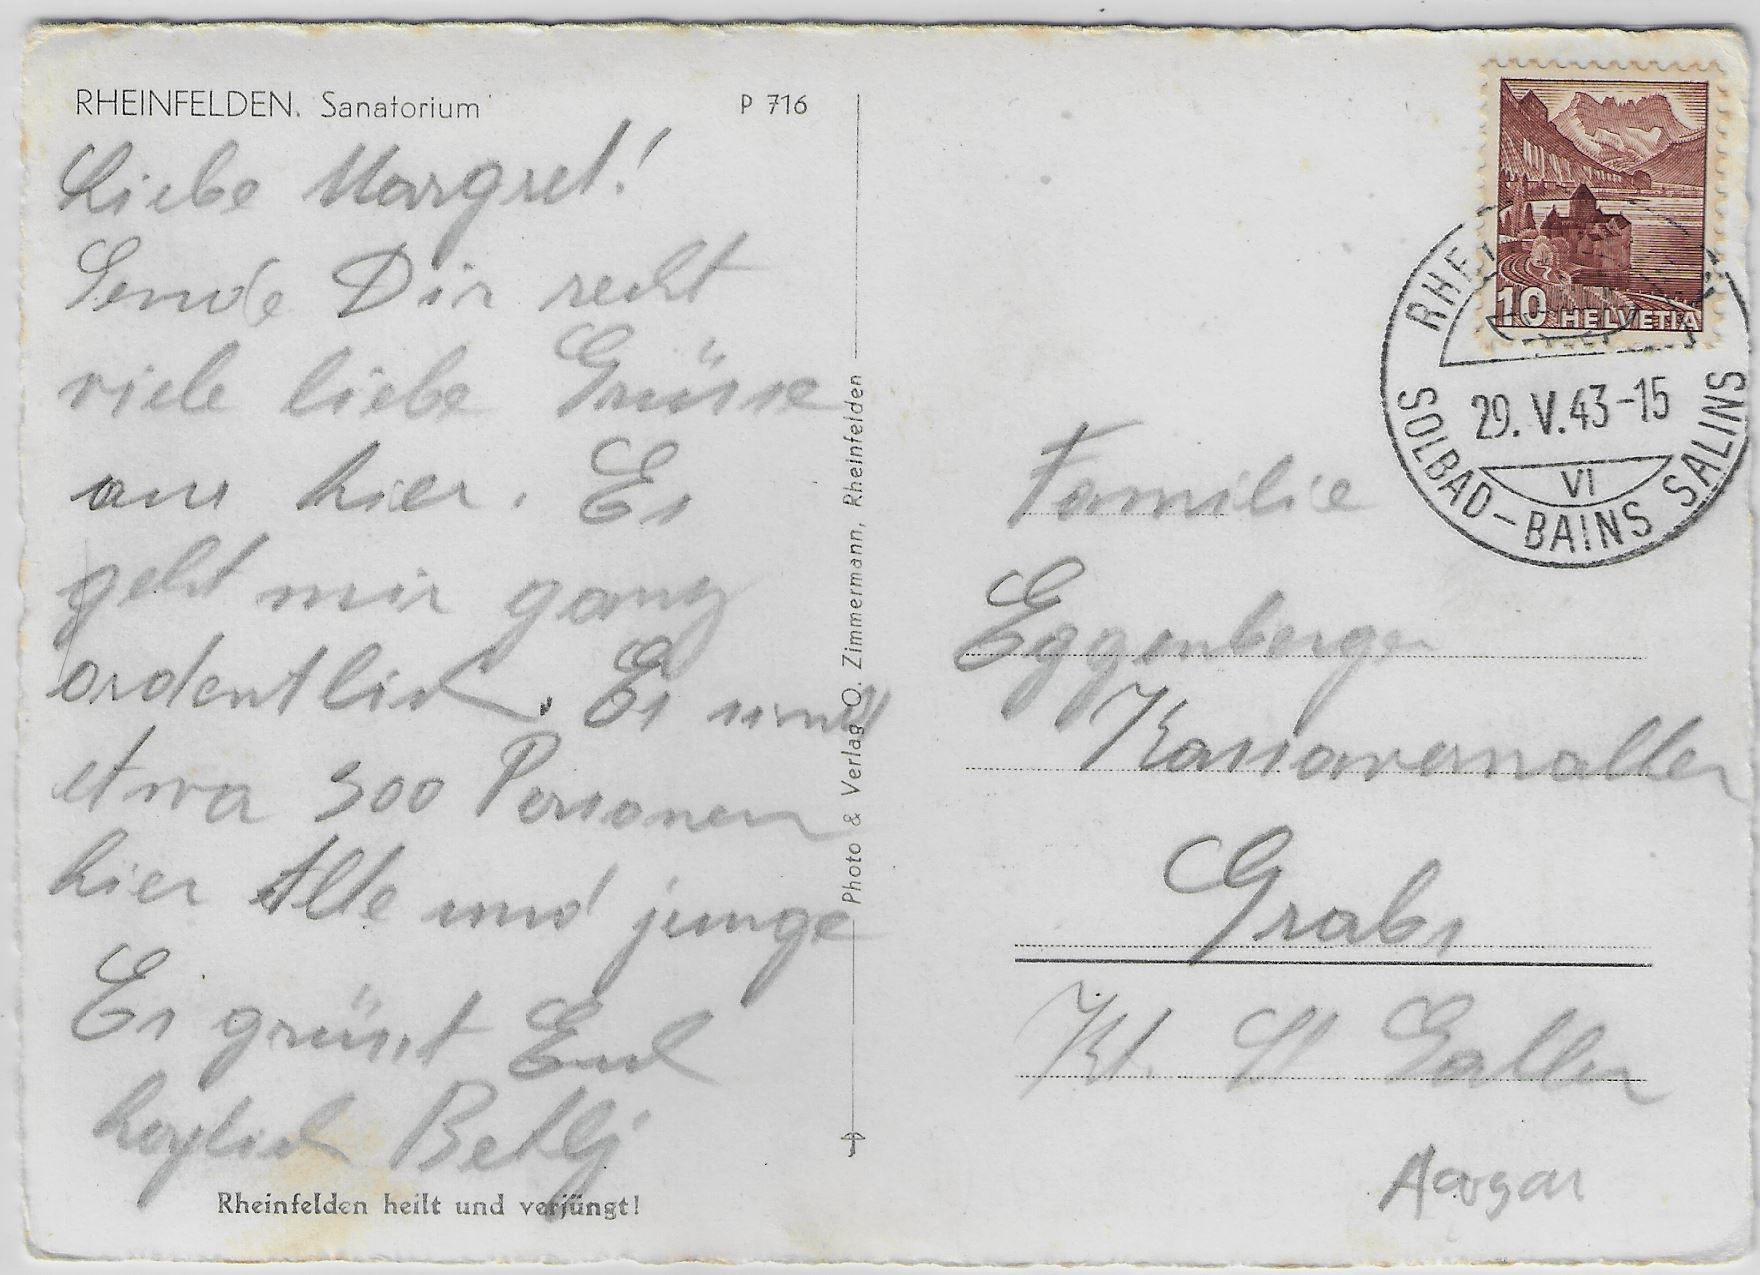 RHEINFELDEN. Sanatorium
P 716
Liebe Margret!
Sende Dir recht
viele liebe Grüsse
aus hier. Es
geht mir ganz
ordentlich. Es sind
etwa 300 Personen
hier Alte und junge
Es grüsst Euch
herzlich Bethlj
Rheinfelden heilt und verjüngt!
Photo & Verlag O. Zimmermann, Rheinfelden
10 HELVETIA
RHEI
29.V.43-15
VI
SOLBAD-BAINS SALINS
Familie
Eggenberger
Grabs
Kt. St Gallen
Aargau